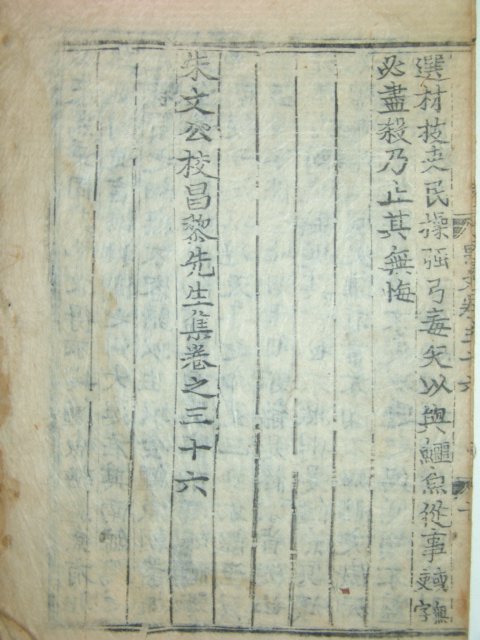 選材技吏民操强弓毒矢以與鱷魚從事或無吏字
必盡殺乃止其無悔
朱文公校昌黎先生集卷之三十六